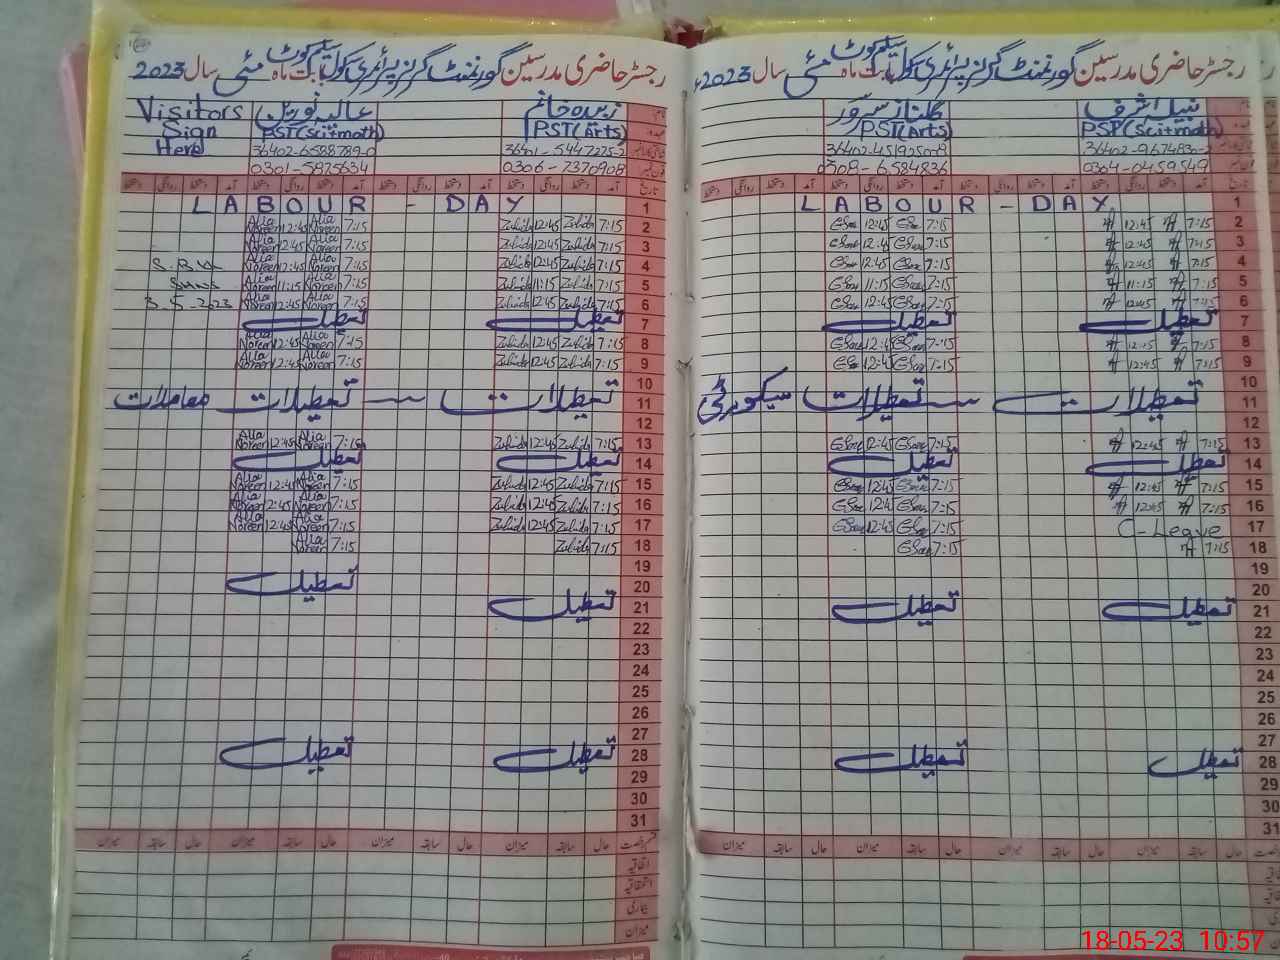 رجسٹر حاضری مدرسین گورنمنٹ گرلز پرائمری سکول سلیم کوٹ بابت ماہ مئی سال 2023
زبیدہ خانم عالیہ نورین Visitors
PST(Arts) PST(Sci+math) Sign
36401-5447275-2 36402-6588789-0 Here
0306-7370908 0301-5875634
تاریخ آمد دستخط روانگی دستخط آمد دستخط روانگی دستخط آمد دستخط روانگی دستخط
1 LABOUR - DAY
2 7:15 Zubida 12:45 Zubida 7:15 Alia Noreen 12:45 Alia Noreen
3 7:15 Zubida 12:45 Zubida 7:15 Alia Noreen 12:45 Alia Noreen
4 7:15 Zubida 12:45 Zubida 7:15 Alia Noreen 12:45 Alia Noreen
5 7:15 Zubida 11:15 Zubida 7:15 Alia Noreen 11:15 Alia Noreen
6 7:15 Zubida 12:45 Zubida 7:15 Alia Noreen 12:45 Alia Noreen 3-5-2023
7 تعطیل تعطیل
8 7:15 Zubida 12:45 Zubida 7:15 Alia Noreen 12:45 Alia Noreen
9 7:15 Zubida 12:45 Zubida 7:15 Alia Noreen 12:45 Alia Noreen
10
11 تعطیلات تعطیلات معاملات
12
13 7:15 Zubida 12:45 Zubida 7:15 Alia Noreen 12:45 Alia Noreen
14 تعطیل تعطیل
15 7:15 Zubida 12:45 Zubida 7:15 Alia Noreen 12:45 Alia Noreen
16 7:15 Zubida 12:45 Zubida 7:15 Alia Noreen 12:45 Alia Noreen
17 7:15 Zubida 12:45 Zubida 7:15 Alia Noreen 12:45 Alia Noreen
18 7:15 Zubida 7:15 Alia Noreen
19
20 تعطیل
21 تعطیل
22
23
24
25
26
27
28 تعطیل تعطیل
29
30
31
قسم رخصت حال سابقہ میزان حال سابقہ میزان حال سابقہ میزان
اتفاقیہ
استحقاقیہ
بیماری
میزان
رجسٹر حاضری مدرسین گورنمنٹ گرلز پرائمری سکول سلیم کوٹ بابت ماہ مئی سال 2023ء
نبیلہ اشرف گلناز سرور
PST(Sci+math) PST(Arts)
0304-0459549 0308-6584836
تاریخ آمد دستخط روانگی دستخط آمد دستخط روانگی دستخط آمد دستخط
1 LABOUR - DAY
2 7:15 12:45 7:15 12:45
3 7:15 12:45 7:15 12:45
4 7:15 12:45 7:15 12:45
5 7:15 11:15 7:15 11:15
6 7:15 12:45 7:15 12:45
7 تعطیل تعطیل
8 7:15 12:15 7:15 12:45
9 7:15 12:45 7:15 12:45
10
11 تعطیلات تعطیلات سیکورٹی
12
13 7:15 12:45 7:15 12:45
14 تعطیل تعطیل
15 7:15 12:45 7:15 12:45
16 7:15 12:45 7:15 12:4
17 C-Leave 7:15 12:45
18 7:15 7:15
19
20
21 تعطیل تعطیل
22
23
24
25
26
27
28 تعطیل تعطیل
29
30
31
حال سابقہ میزان حال سابقہ میزان حال سابقہ میزان
18-05-23 10:57